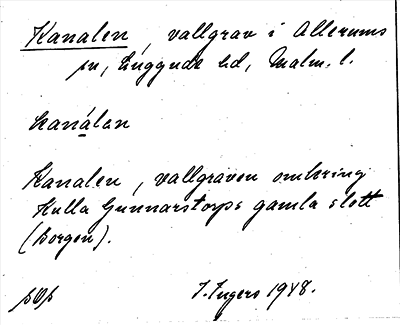 Kanalen, vallgrav i Allerums
sn, Luggude hd, Malm. l.
kanálan
Kanalen, vallgraven omkring
Kulla Gunnarstorps gamla slott
(borgen).
I. Ingers 1948.